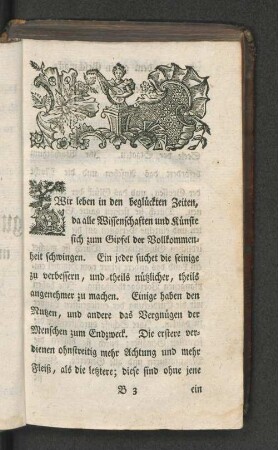 Wir leben in den beglückten Zeiten,
da alle Wissenschaften und Künste
sich zum Gipfel der Vollkommen-
heit schwingen. Ein jeder suchet die seinige
zu verbessern, und theils nützlicher, theils
angenehmer zu machen. Einige haben den
Nutzen, und andere das Vergnügen der
Menschen zum Endzweck. Die erstere ver-
dienen ohnstreitig mehr Achtung und mehr
Fleiß, als die letztere; diese sind ohne jene
B 3 ein